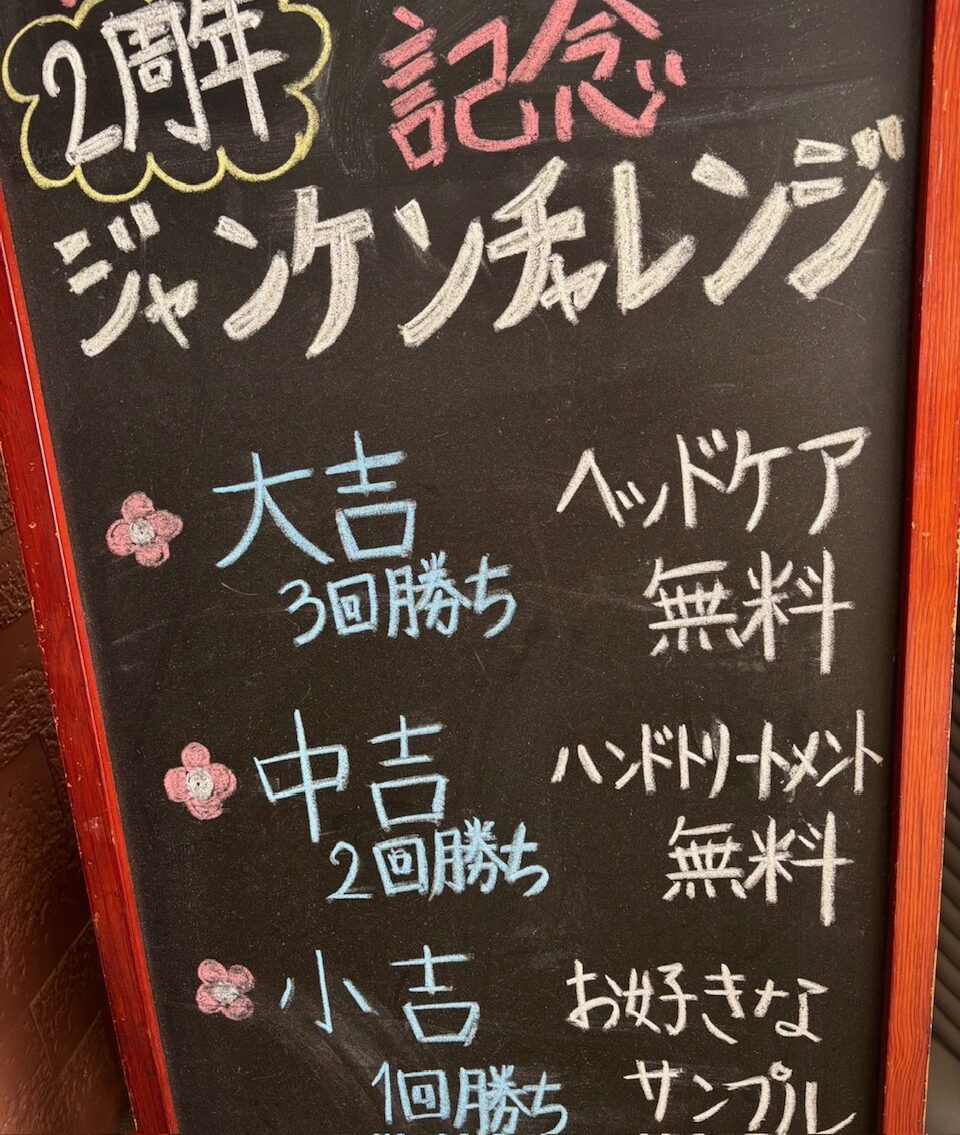 2周年 記念
ジャンケンチャレンジ
大吉 ヘッドケア
3回勝ち 無料
中吉 ハンドトリートメント
2回勝ち 無料
小吉 お好きな
1回勝ち サンプル